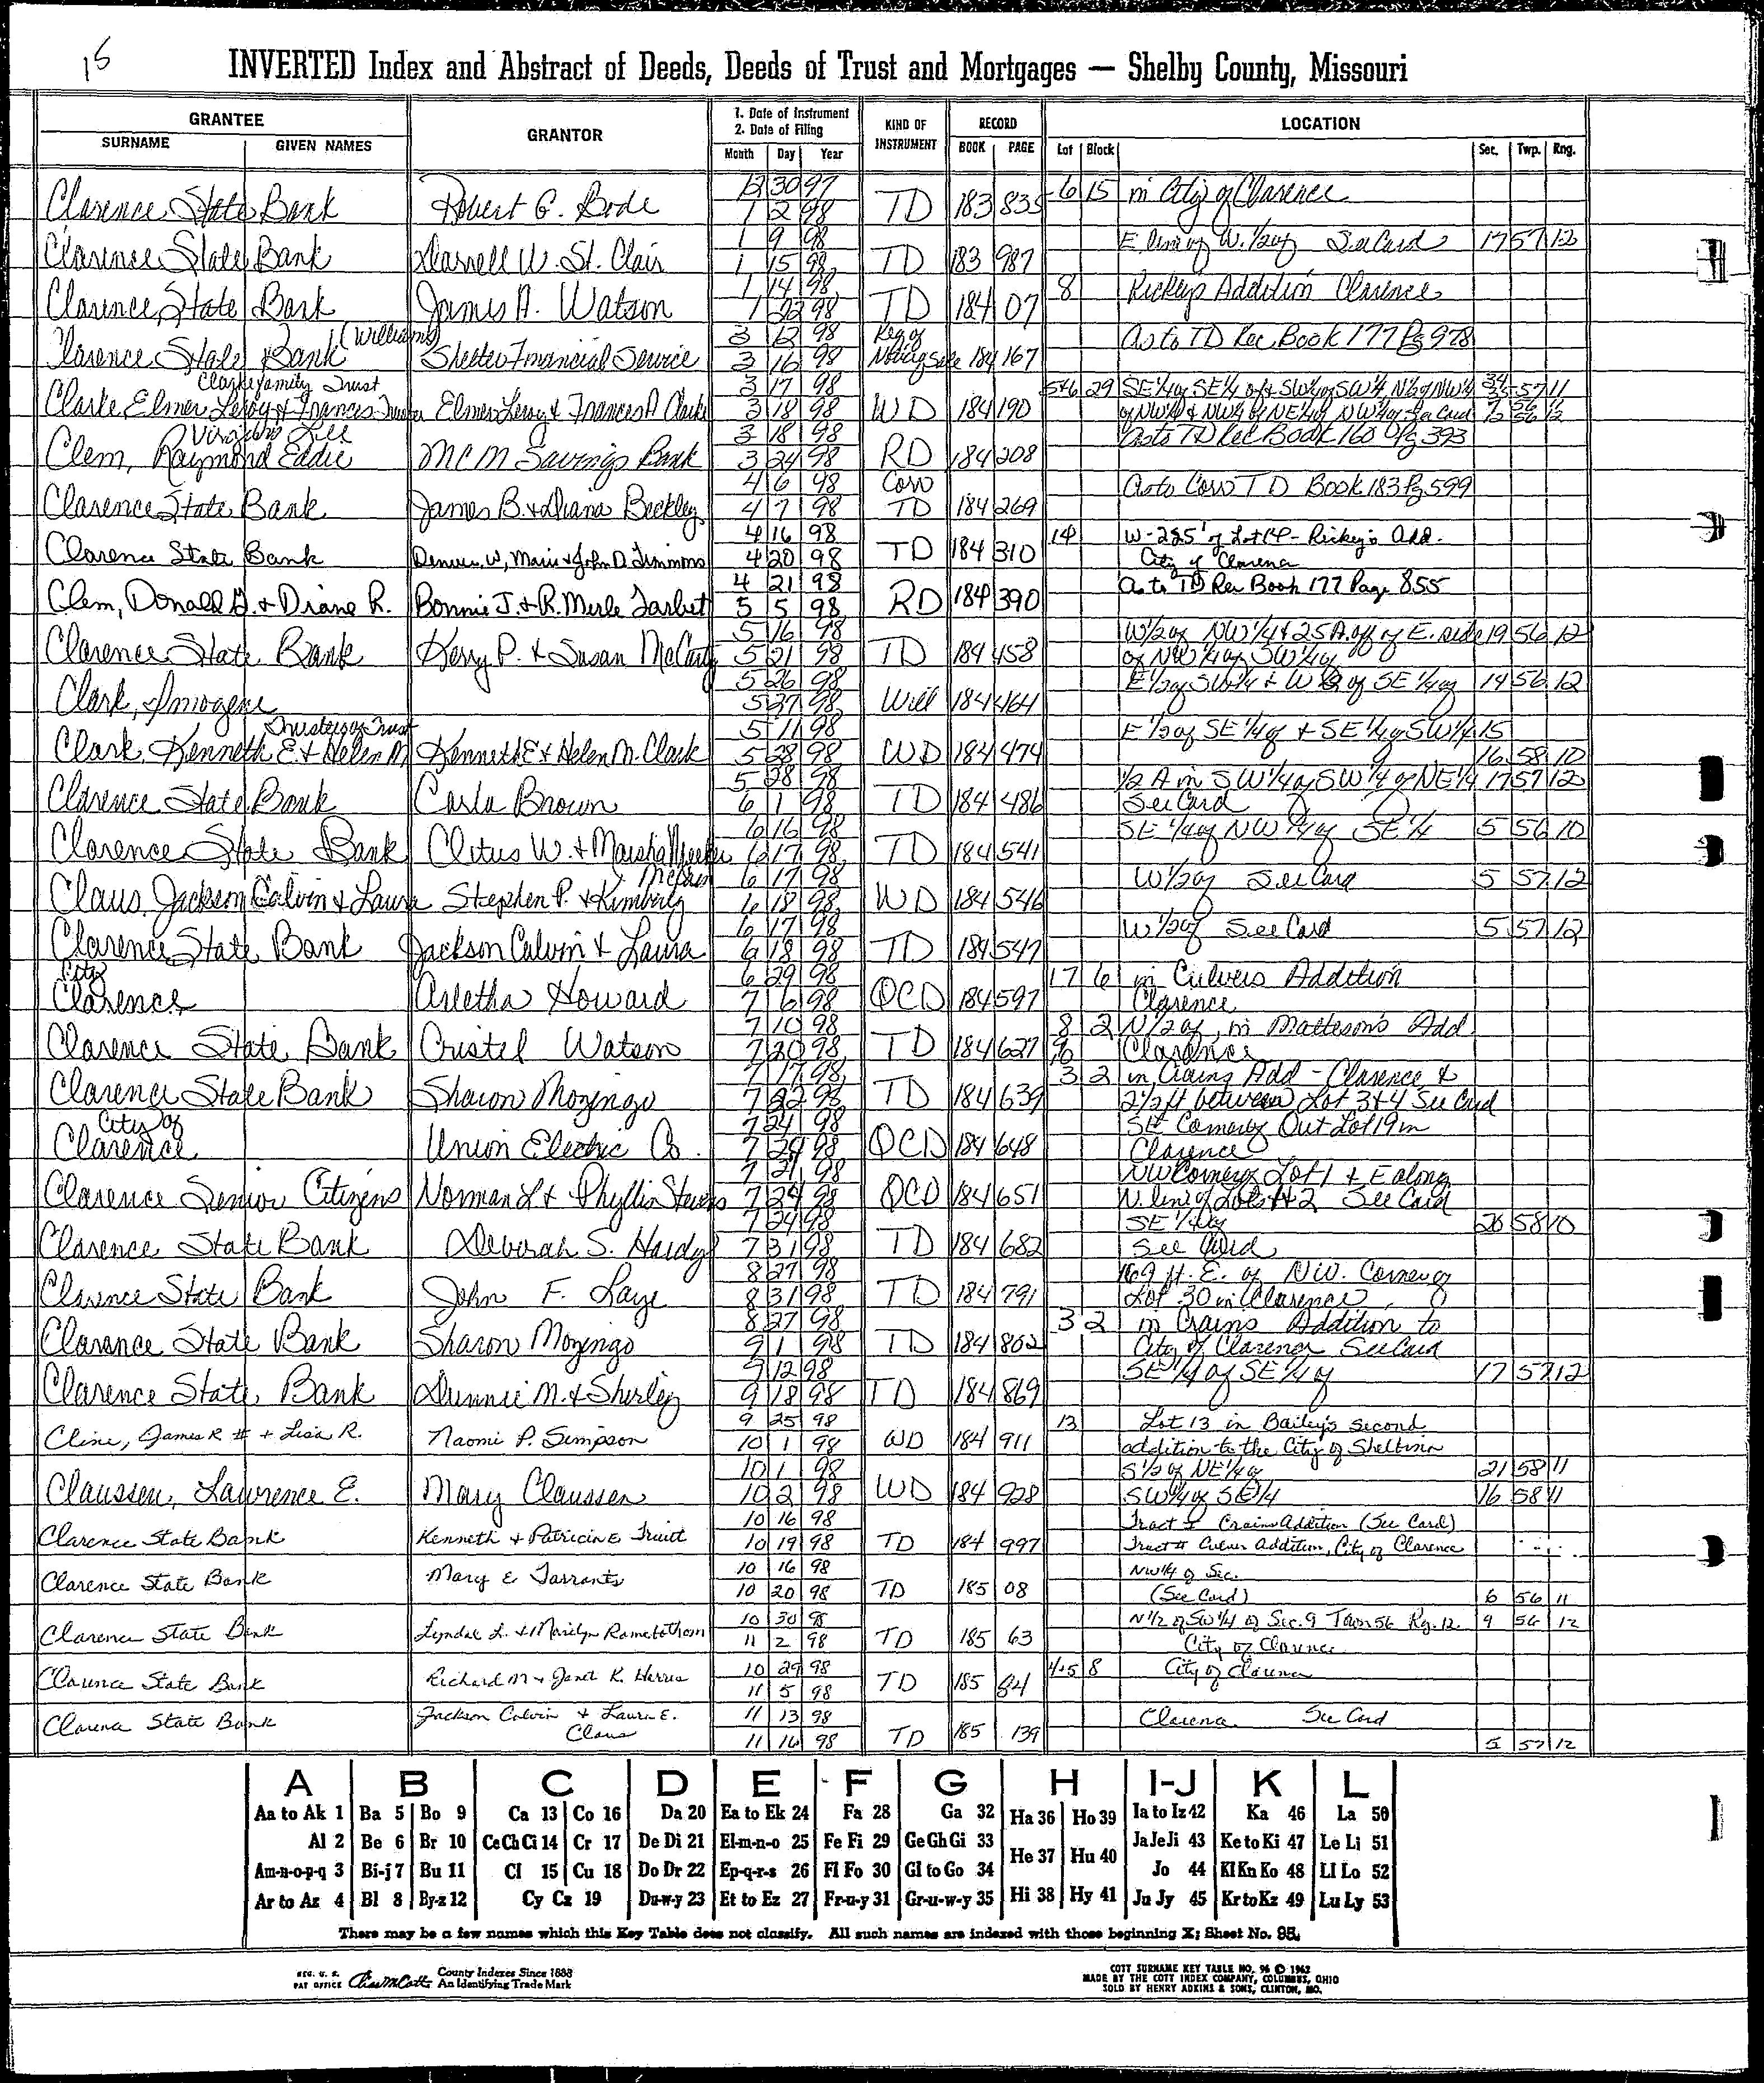 15
INVERTED Index and Abstract of Deeds, Deeds of Trust and Mortgages — Shelby County, Missouri
GRANTEE
SURNAME GIVEN NAMES
GRANTOR
1. Date of Instrument
2. Date of Filing
Month Day Year
KIND OF INSTRUMENT
RECORD
BOOK PAGE
LOCATION
Lot Block Sec. Twp. Rng.
12 30 97 6 15 in City of Clarence
Clarence State Bank Robert G. Bode 1 2 98 TD 183 835
1 9 98 E. line of W. 1/2 of See Card 17 57 12
Clarence State Bank Darrell W. St. Clair 1 15 98 TD 183 987
1 14 98 8 Rickey's Addition Clarence
Clarence State Bank James A. Watson 1 22 98 TD 184 07
(Williams) 3 12 98 As to TD Rec Book 177 Pg 978
Clarence State Bank Shelter Financial Service 3 16 98 184 167
Clarke Family Trust 3 17 98 5+6 29 SE 1/4 of SE 1/4 SW 1/4 of SW 1/4 N 1/2 of NW 1/4 57 11
Clarke, Elmer Leroy & Frances Elmer Leroy & Frances A Clarke 3 18 98 WD 184 190 of NW 1/4 & NW 1/4 of NE 1/4 of NW 1/4 of See Card
Virginia Lee 3 18 98 As to TD Rec Book 160 Pg 393
Clem, Raymond Eddie MCM Savings Bank 3 24 98 RD 184 208
4 6 98 Corr As to Corr TD Book 183 Pg 599
Clarence State Bank James B. & Diana Beckley 4 7 98 TD 184 269
4 16 98 14 W-225' of Lot 14 - Rickey's Add.
Clarence State Bank Denver W, Marie & John D. Timmons 4 20 98 TD 184 310 City of Clarence
4 21 98 As to TD Rec Book 177 Page 855
Clem, Donald G. & Diane R. Bonnie J. & R. Merle Tarbet 5 5 98 RD 184 390
5 16 98 W 1/2 of NW 1/4 & 25 A. off of E. side 19 56 12
Clarence State Bank Kerry P. & Susan McCarty 5 21 98 TD 184 458 of NW 1/4 of SW 1/4 of
5 26 98 E 1/2 of SW 1/4 & W 1/2 of SE 1/4 of 14 56 12
Clark, Imogene 5 27 98 Will 184 464
Trustees of Trust 5 11 98 E 1/2 of SE 1/4 of & SE 1/4 of SW 1/4 15
Clark, Kenneth E. & Helen M Kenneth E & Helen M. Clark 5 28 98 WD 184 474 16 58 10
5 28 98 1/2 A in SW 1/4 of SW 1/4 of NE 1/4 17 57 12
Clarence State Bank Carla Brown 6 1 98 TD 184 486 See Card
6 16 98 SE 1/4 of NW 1/4 of SE 1/4 5 56 10
Clarence State Bank Cletus W. & Marsha 6 17 98 TD 184 541
6 17 98 W 1/2 of See Card 5 57 12
Claus, Jackson Calvin & Laura Stephen P. & Kimberly 6 18 98 WD 184 546
6 17 98 W 1/2 of See Card 5 57 12
Clarence State Bank Jackson Calvin & Laura 6 18 98 TD 184 547
City 6 29 98 17 6 in Culvers Addition
Clarence Arletha Howard 7 6 98 QCD 184 597 Clarence
7 10 98 8 2 N 1/2 of, in Matteson's Add
Clarence State Bank Cristel Watson 7 20 98 TD 184 627 Clarence
7 17 98 3 2 in Crains Add - Clarence &
Clarence State Bank Sharon Mozingo 7 22 98 TD 184 639 2 1/2 ft between Lot 3 & 4 See Card
City of 7 24 98 SE Corner of Out Lot 19 in
Clarence Union Electric Co. 7 24 98 QCD 184 648 Clarence
7 21 98 NW Corner of Lot 1 & E along
Clarence Senior Citizens Norman L & Phyllis Stevens 7 24 98 QCD 184 651 N. line of Lots 1 & 2 See Card
7 24 98 SE 1/4 of 20 58 10
Clarence State Bank Deborah S. Hardy 7 31 98 TD 184 682 See Card
8 27 98 169 ft. E. of NW. Corner of
Clarence State Bank John F. Laye 8 31 98 TD 184 791 Lot 30 in Clarence
8 27 98 3 2 in Crains Addition to
Clarence State Bank Sharon Mozingo 9 1 98 TD 184 802 City of Clarence See Card
9 12 98 SE 1/4 of SE 1/4 of 17 57 12
Clarence State Bank Dunnie M. & Sherley 9 18 98 TD 184 869
9 25 98 13 Lot 13 in Bailey's second
Cline, James R II & Lisa R. Naomi P. Simpson 10 1 98 WD 184 911 addition to the City of Shelbina
10 1 98 S 1/2 of NE 1/4 of 21 58 11
Claussen, Lawrence E. Mary Claussen 10 2 98 WD 184 928 SW 1/4 of SE 1/4 16 58 11
10 16 98 Tract I Crains Addition (See Card)
Clarence State Bank Kenneth & Patricia E Truitt 10 19 98 TD 184 997 Tract II Culver Addition, City of Clarence
10 16 98 NW 1/4 of Sec.
Clarence State Bank Mary E Tarrants 10 20 98 TD 185 08 (See Card) 6 56 11
10 30 98 N 1/2 of SW 1/4 of Sec. 9 Twn 56 Rg. 12. 9 56 12
Clarence State Bank Lyndal L. & Marilyn Ramsbothom 11 2 98 TD 185 63 City of Clarence
10 29 98 4+5 8 City of Clarence
Clarence State Bank Richard M & Janet K. Harris 11 5 98 TD 185 84
Jackson Calvin & Laura E. 11 13 98 Clarence See Card
Clarence State Bank Claus 11 16 98 TD 185 139 5 57 12
A B C D E F G H I-J K L
Aa to Ak 1 Ba 5 Bo 9 Ca 13 Co 16 Da 20 Ea to Ek 24 Fa 28 Ga 32 Ha 36 Ho 39 Ia to Iz 42 Ka 46 La 50
Al 2 Be 6 Br 10 Ce Ch Ci 14 Cr 17 De Di 21 El-m-n-o 25 Fe Fi 29 Ge Gh Gi 33 He 37 Hu 40 Ja Je Ji 43 Ke to Ki 47 Le Li 51
Am-n-o-p-q 3 Bi-j 7 Bu 11 Cl 15 Cu 18 Do Dr 22 Ep-q-r-s 26 Fl Fo 30 Gl to Go 34 Jo 44 Kl Kn Ko 48 Ll Lo 52
Ar to Az 4 Bl 8 By-z 12 Cy Cz 19 Du-w-y 23 Et to Ez 27 Fr-u-y 31 Gr-u-w-y 35 Hi 38 Hy 41 Ju Jy 45 Kr to Kz 49 Lu Ly 53
There may be a few names which this Key Table does not classify. All such names are indexed with those beginning X; Sheet No. 95.
REG. U. S. PAT OFFICE County Indexes Since 1888 An Identifying Trade Mark
COTT SURNAME KEY TABLE NO. 96 © 1962
MADE BY THE COTT INDEX COMPANY, COLUMBUS, OHIO
SOLD BY HENRY ADKINS & SONS, CLINTON, MO.